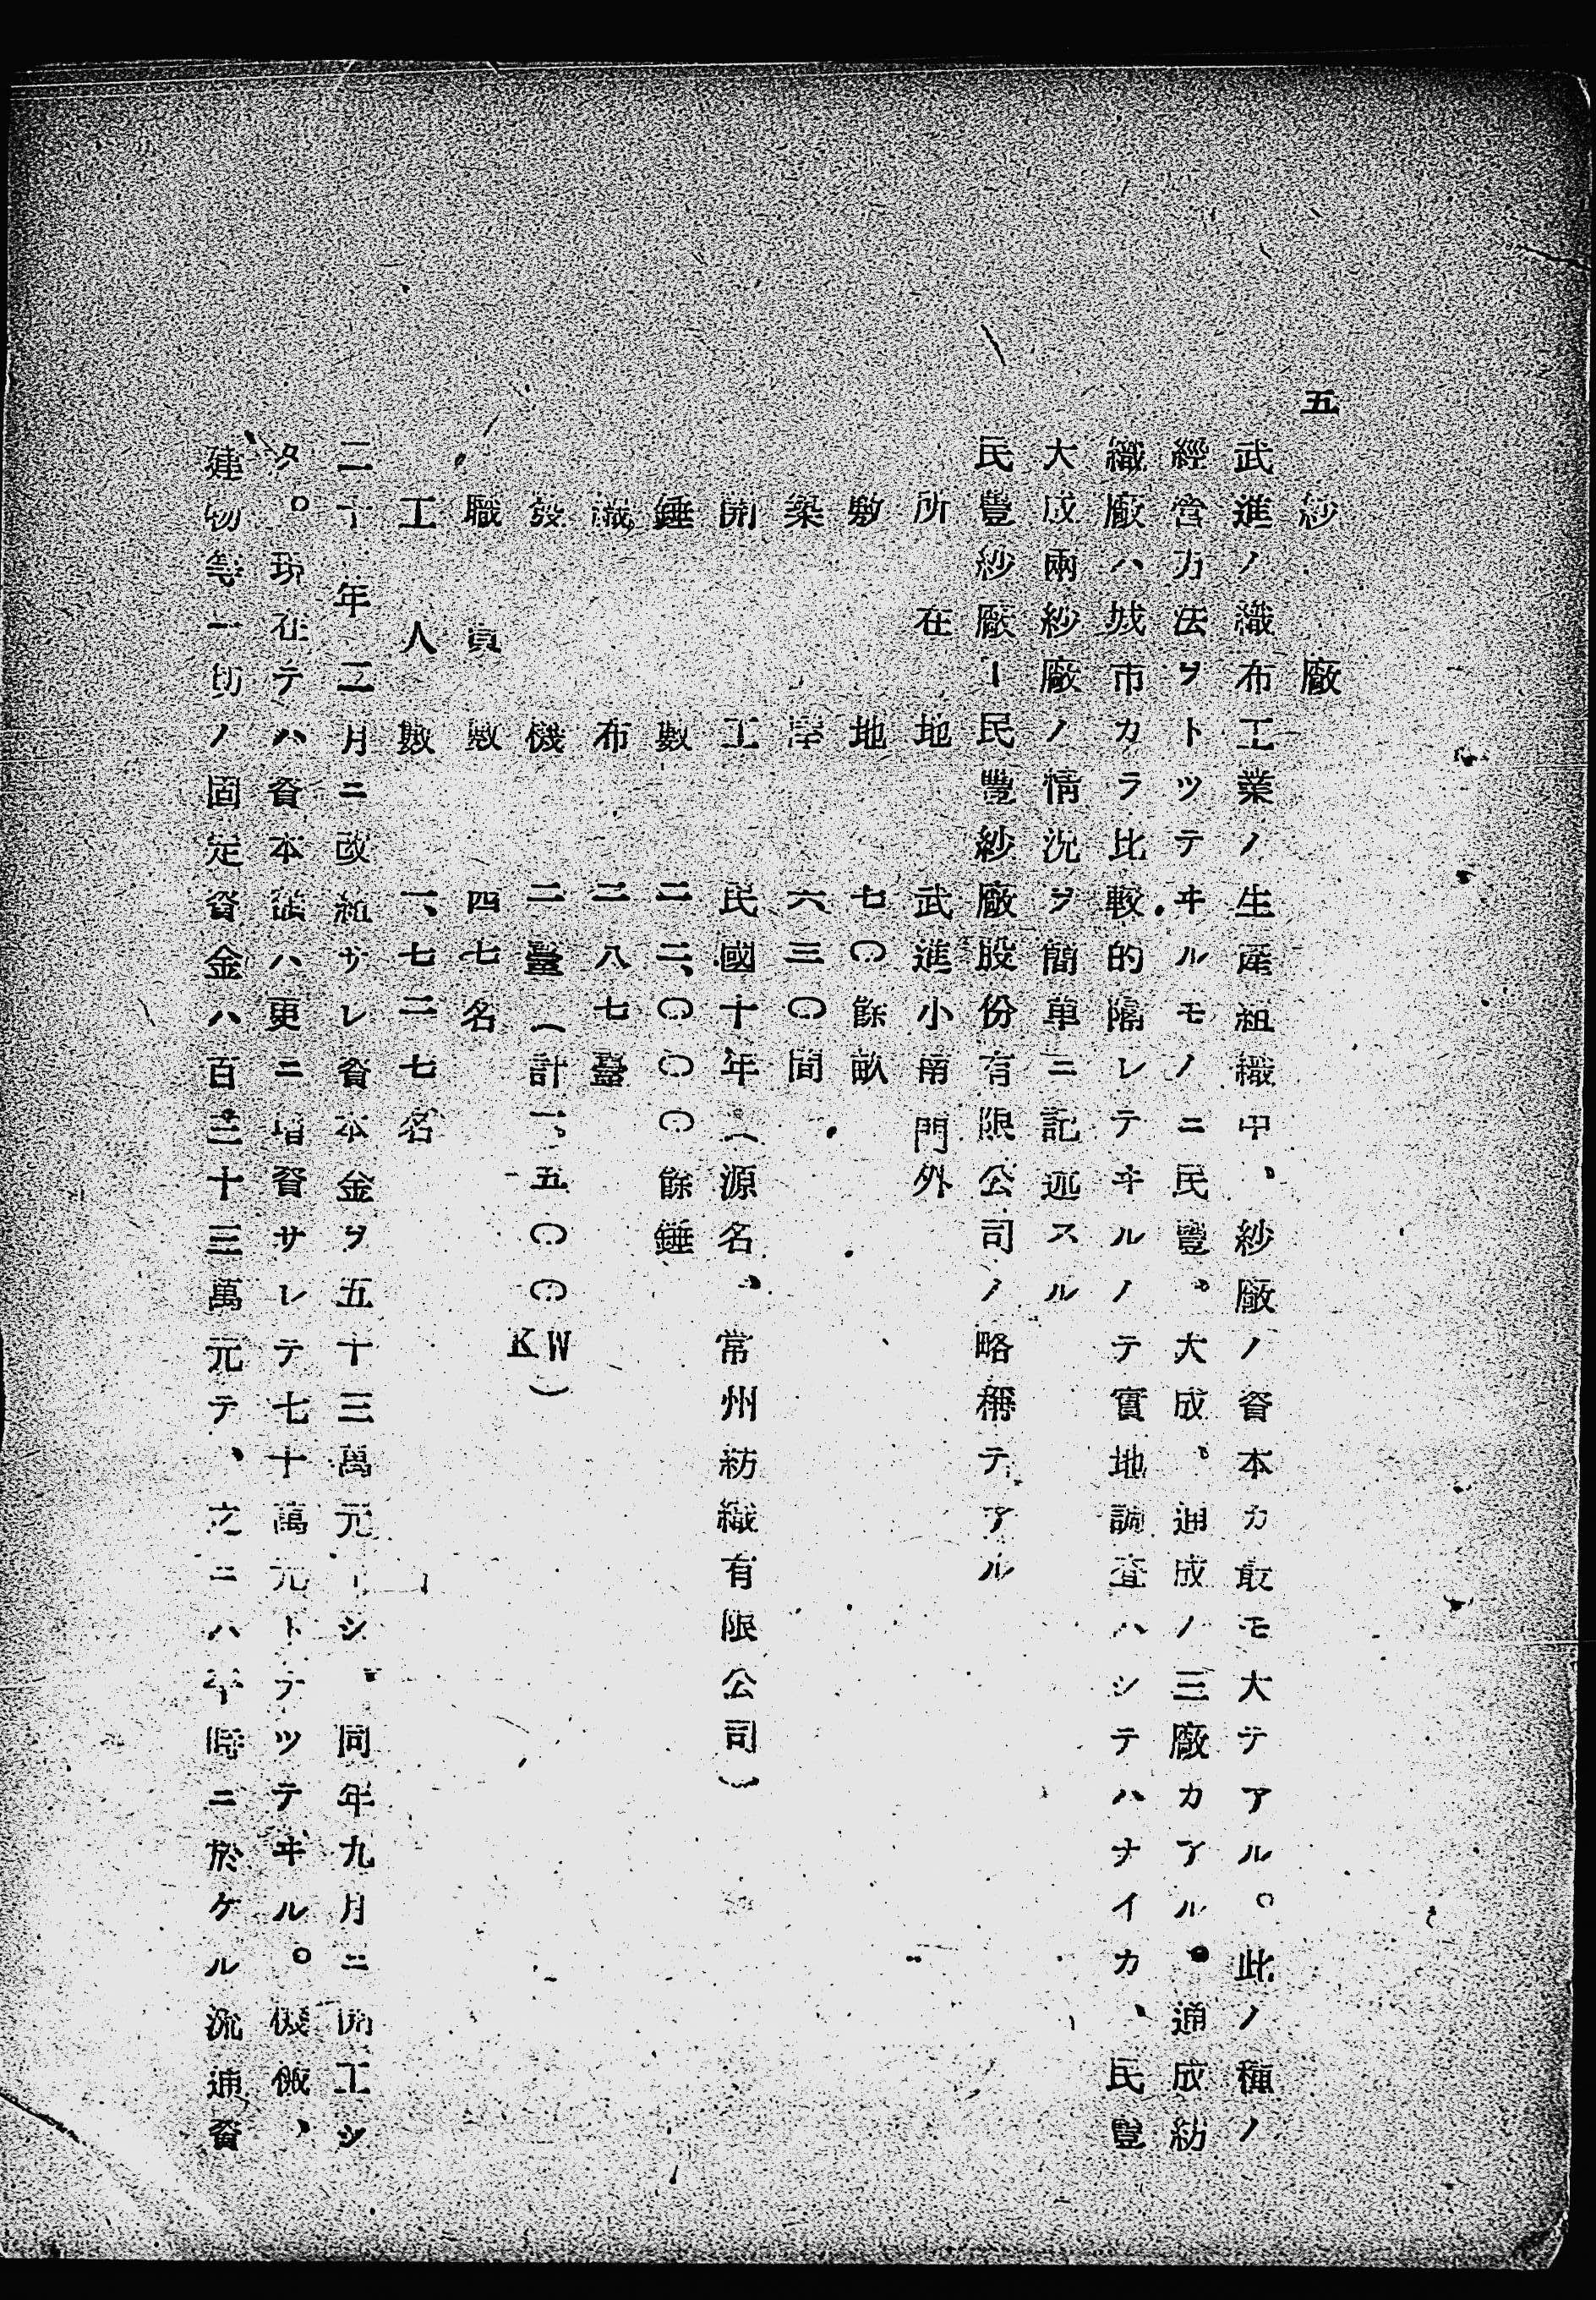 五　紗廠
武進ノ織布工業ノ生産組織中、紗廠ノ資本カ最モ大テアル。此ノ種ノ
經営方法ヲトツテヰルモノニ民豐、大成、通成ノ三廠カアル。通成紡
織廠ハ城市カラ比較的隔レテヰルノテ實地調査ハシテハナイカ、民豐
大成兩紗廠ノ情況ヲ簡單ニ記述スル
民豐紗廠ー民豐紗廠股份有限公司ノ略稱テアル
所在地　武進小南門外
敷地　七〇餘畝
築　六三〇間
開工　民國十年（源名、常州紡織有限公司）
錘數　二二、〇〇〇餘錘
織布　二八七臺
發機　二臺（計一、五〇〇KW）
職員數　四七名
工人數　一、七二七名
二十年二月ニ改組サレ資本金ヲ五十三萬元トシ、同年九月ニ開工シ
タ。現在テハ資本從ハ更ニ增資サレテ七十萬元トナツテヰル。機械、
建物等一切ノ固定資金ハ百三十三萬元テ、之ニハ平時ニ於ケル流通資